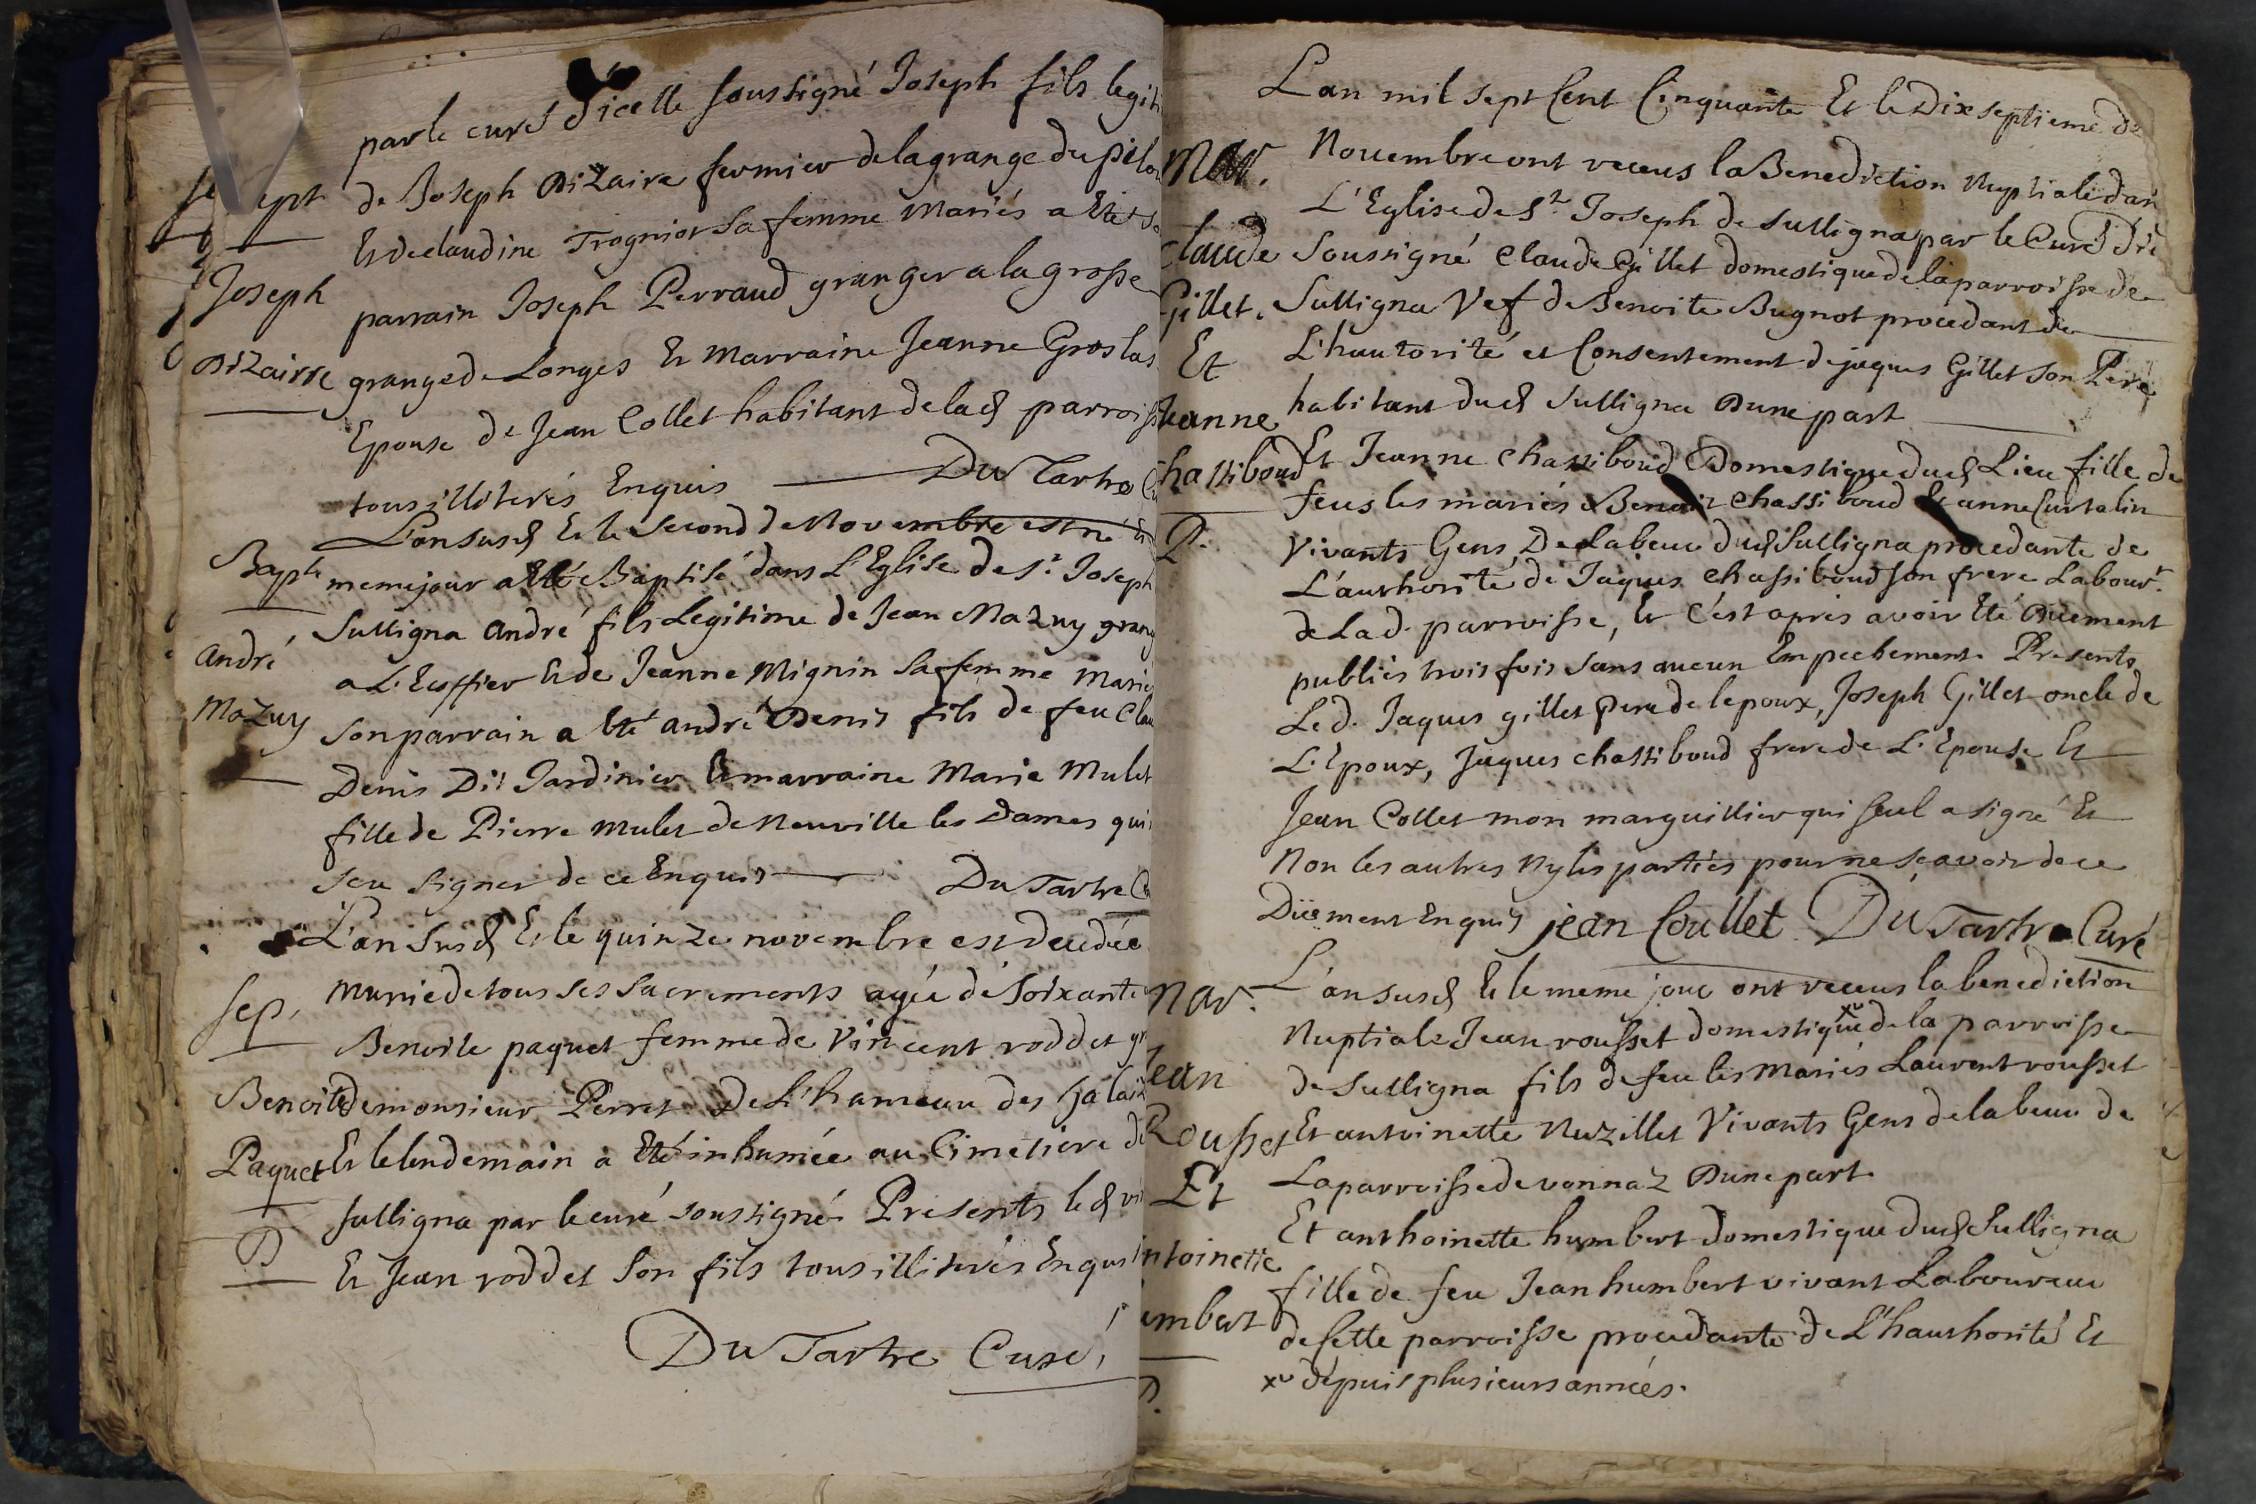 par le curé d'icelle soussigné Joseph fils legit
de Joseph Dizaire fermier de la grange du pilo
Et de claudine Trognior sa femme Mariés a Eté
parrain Joseph Perraud granger a la grosse
grange de Longes Et Marraine Jeanne Groslas
Epouse de Jean Collet habitant de lad parroiss
tous illiterés Enquis Du Tartre
Joseph
Dizaire
L'an susd Et le second de Novembre est né
meme jour a Eté Baptisé dans L'Eglise de St Joseph
Sulligna André fils Legitime de Jean Mazuy grang
a L'Euffier Et de Jeanne Mignin sa femme Marié
son parrain a Eté andré Denis fils de feu Clau
Denis Dit Jardinier Et marraine Marie Mulet
fille de Pierre Mulet de Neuville les Dames qui
sceu signer de ce Enquis Du Tartre
Bapt
André
Mazuy
L'an susd Et le quinze novembre est decedée
Munie de tous ses sacrements agée de soixante
Benoite paquet femme de Vincent roddet gr
de monsieur Perret De L'hameau des
Et le lendemain a Eté inhumée au Cimetiere de
sulligna par le curé soussigné. Presents led
Et Jean roddet son fils tous illiterés Enquis
Du Tartre Curé
Sep.
Benoite
Paquet
L'an mil sept Cent Cinquante Et le Dix septieme de
Novembre ont receus la Benediction Nuptiale dan
L'Eglise de St Joseph de sulligna par le Curé
Soussigné Claude Gillet domestique de la parroisse de
Sulligna Vef de Benoite Bugnot procedant de
L'hautorité et Consentement de jaques Gillet son Pere
habitant dud Sulligna Dune part
Et Jeanne Chassiboud Domestique dud Lieu fille de
feus les mariés Benoit Chassiboud Et anne Curtalin
Vivants Gens De Labeur dud Sulligna procedante de
L'authorité de Jaques Chassiboud son frere Labour.
de Lad. parroisse, Et C'est apres avoir Eté Duement
publiés trois fois sans aucun Empechement. Presents
Led. Jaques gillet Pere de lepoux, Joseph Gillet oncle de
L'Epoux, Jaques chassiboud frere de L'Epouse Et
Jean Collet mon marguillier qui seul a signé Et
Non les autres Ny les partiés pour ne sçavoir de ce
Düement Enquis jean Coullet Du Tartre Curé
Mar.
Claude
Gillet.
Et
Jeanne
Chassiboud
L'an susd Et le meme jour ont receus la benediction
Nuptiale Jean rousset domestique x de la parroisse
de Sulligna fils de feu les Mariés Laurent rousset
Et antoinette Nuzillet Vivants Gens de labeur de
La parroisse de vonnaz Dune part
Et anthoinette humbert domestique dud Sulligna
fille de feu Jean humbert vivant Laboureur
de sette parroisse procedante de L'hauthorité Et
x depuis plusieurs années.
Mar.
Jean
Rousset
Et
ntoinette
umbert